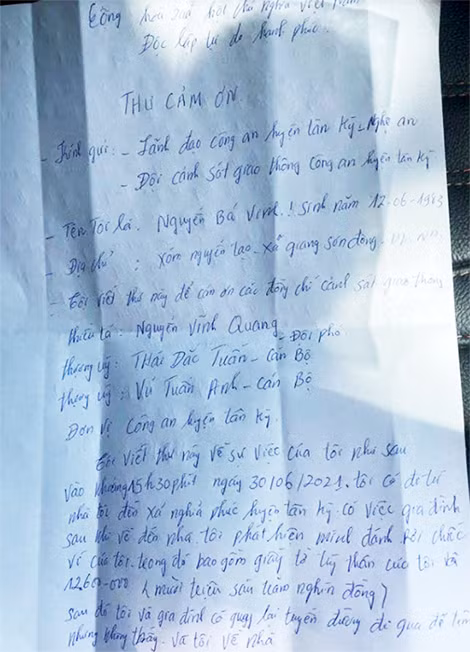 Cộng hòa xã hội chủ nghĩa Việt Nam
Độc lập tự do hạnh phúc.
THƯ CẢM ƠN
- Kính gửi: - Lãnh đạo công an huyện tân Kỳ - Nghệ an
- Đội cảnh sát giao thông công an huyện tân kỳ
- Tên Tôi là. Nguyễn Bá Vinh.! Sinh năm 12-06-1983
- Địa chỉ : xóm nguyên tạo - xã quang sơn
- Tôi viết thư này để cảm ơn các đồng chí cảnh sát giao thông
thiếu tá: Nguyễn Vĩnh Quang - Đội phó
thượng uý: THÁI DẮC TUẤN - Cán Bộ
thượng uý: Vũ TUẤN Anh - Cán Bộ
Đơn vị Công an huyện tân kỳ.
Tôi viết thư này về sự việc của tôi như sau
vào khoảng 15h30phút ngày 30/06/2021. tôi có đi từ
nhà tôi đến xã nghĩa phúc huyện tân kỳ có việc gia đình
sau khi về đến nhà. tôi phát hiện mình đánh rơi chiếc
ví của tôi. trong đó bao gồm giấy tờ tuỳ thân của tôi và
12.600.000 (mười triệu sáu trăm nghìn đồng)
sau đó tôi và gia đình có quay lại tuyến đường đi qua để tìm
nhưng không thấy. và tôi về nhà